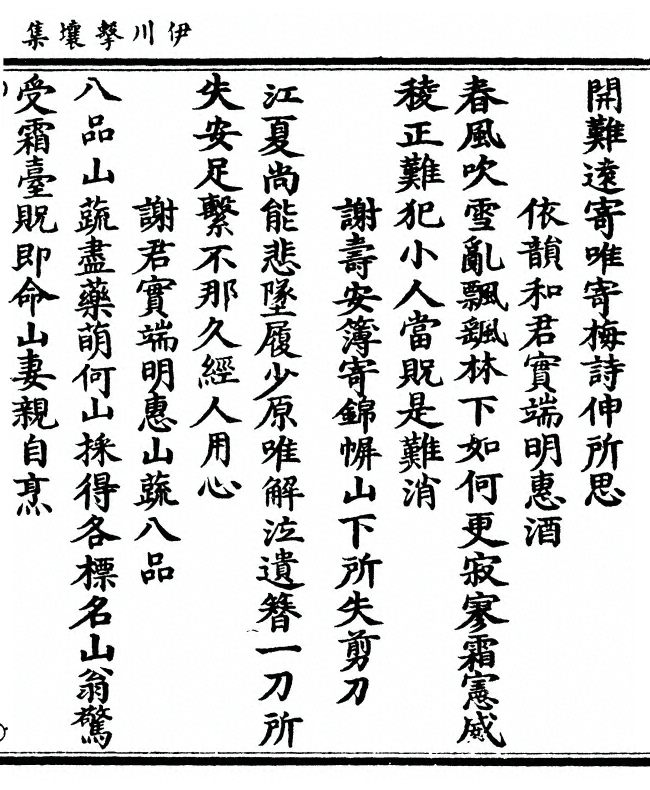 伊川擊壤集
開難遠寄唯寄梅詩伸所思
依韻和君實端明惠酒
春風吹雪亂飄飄林下如何更寂寥霜憲威
稜正難犯小人當貺是難消
謝壽安簿寄錦幈山下所失剪刀
江夏尚能悲墜履少原唯解泣遺簪一刀所
失安足繫不那久經人用心
謝君實端明惠山蔬八品
八品山蔬盡藥萌何山採得各標名山翁驚
受霜臺貺即命山妻親自烹